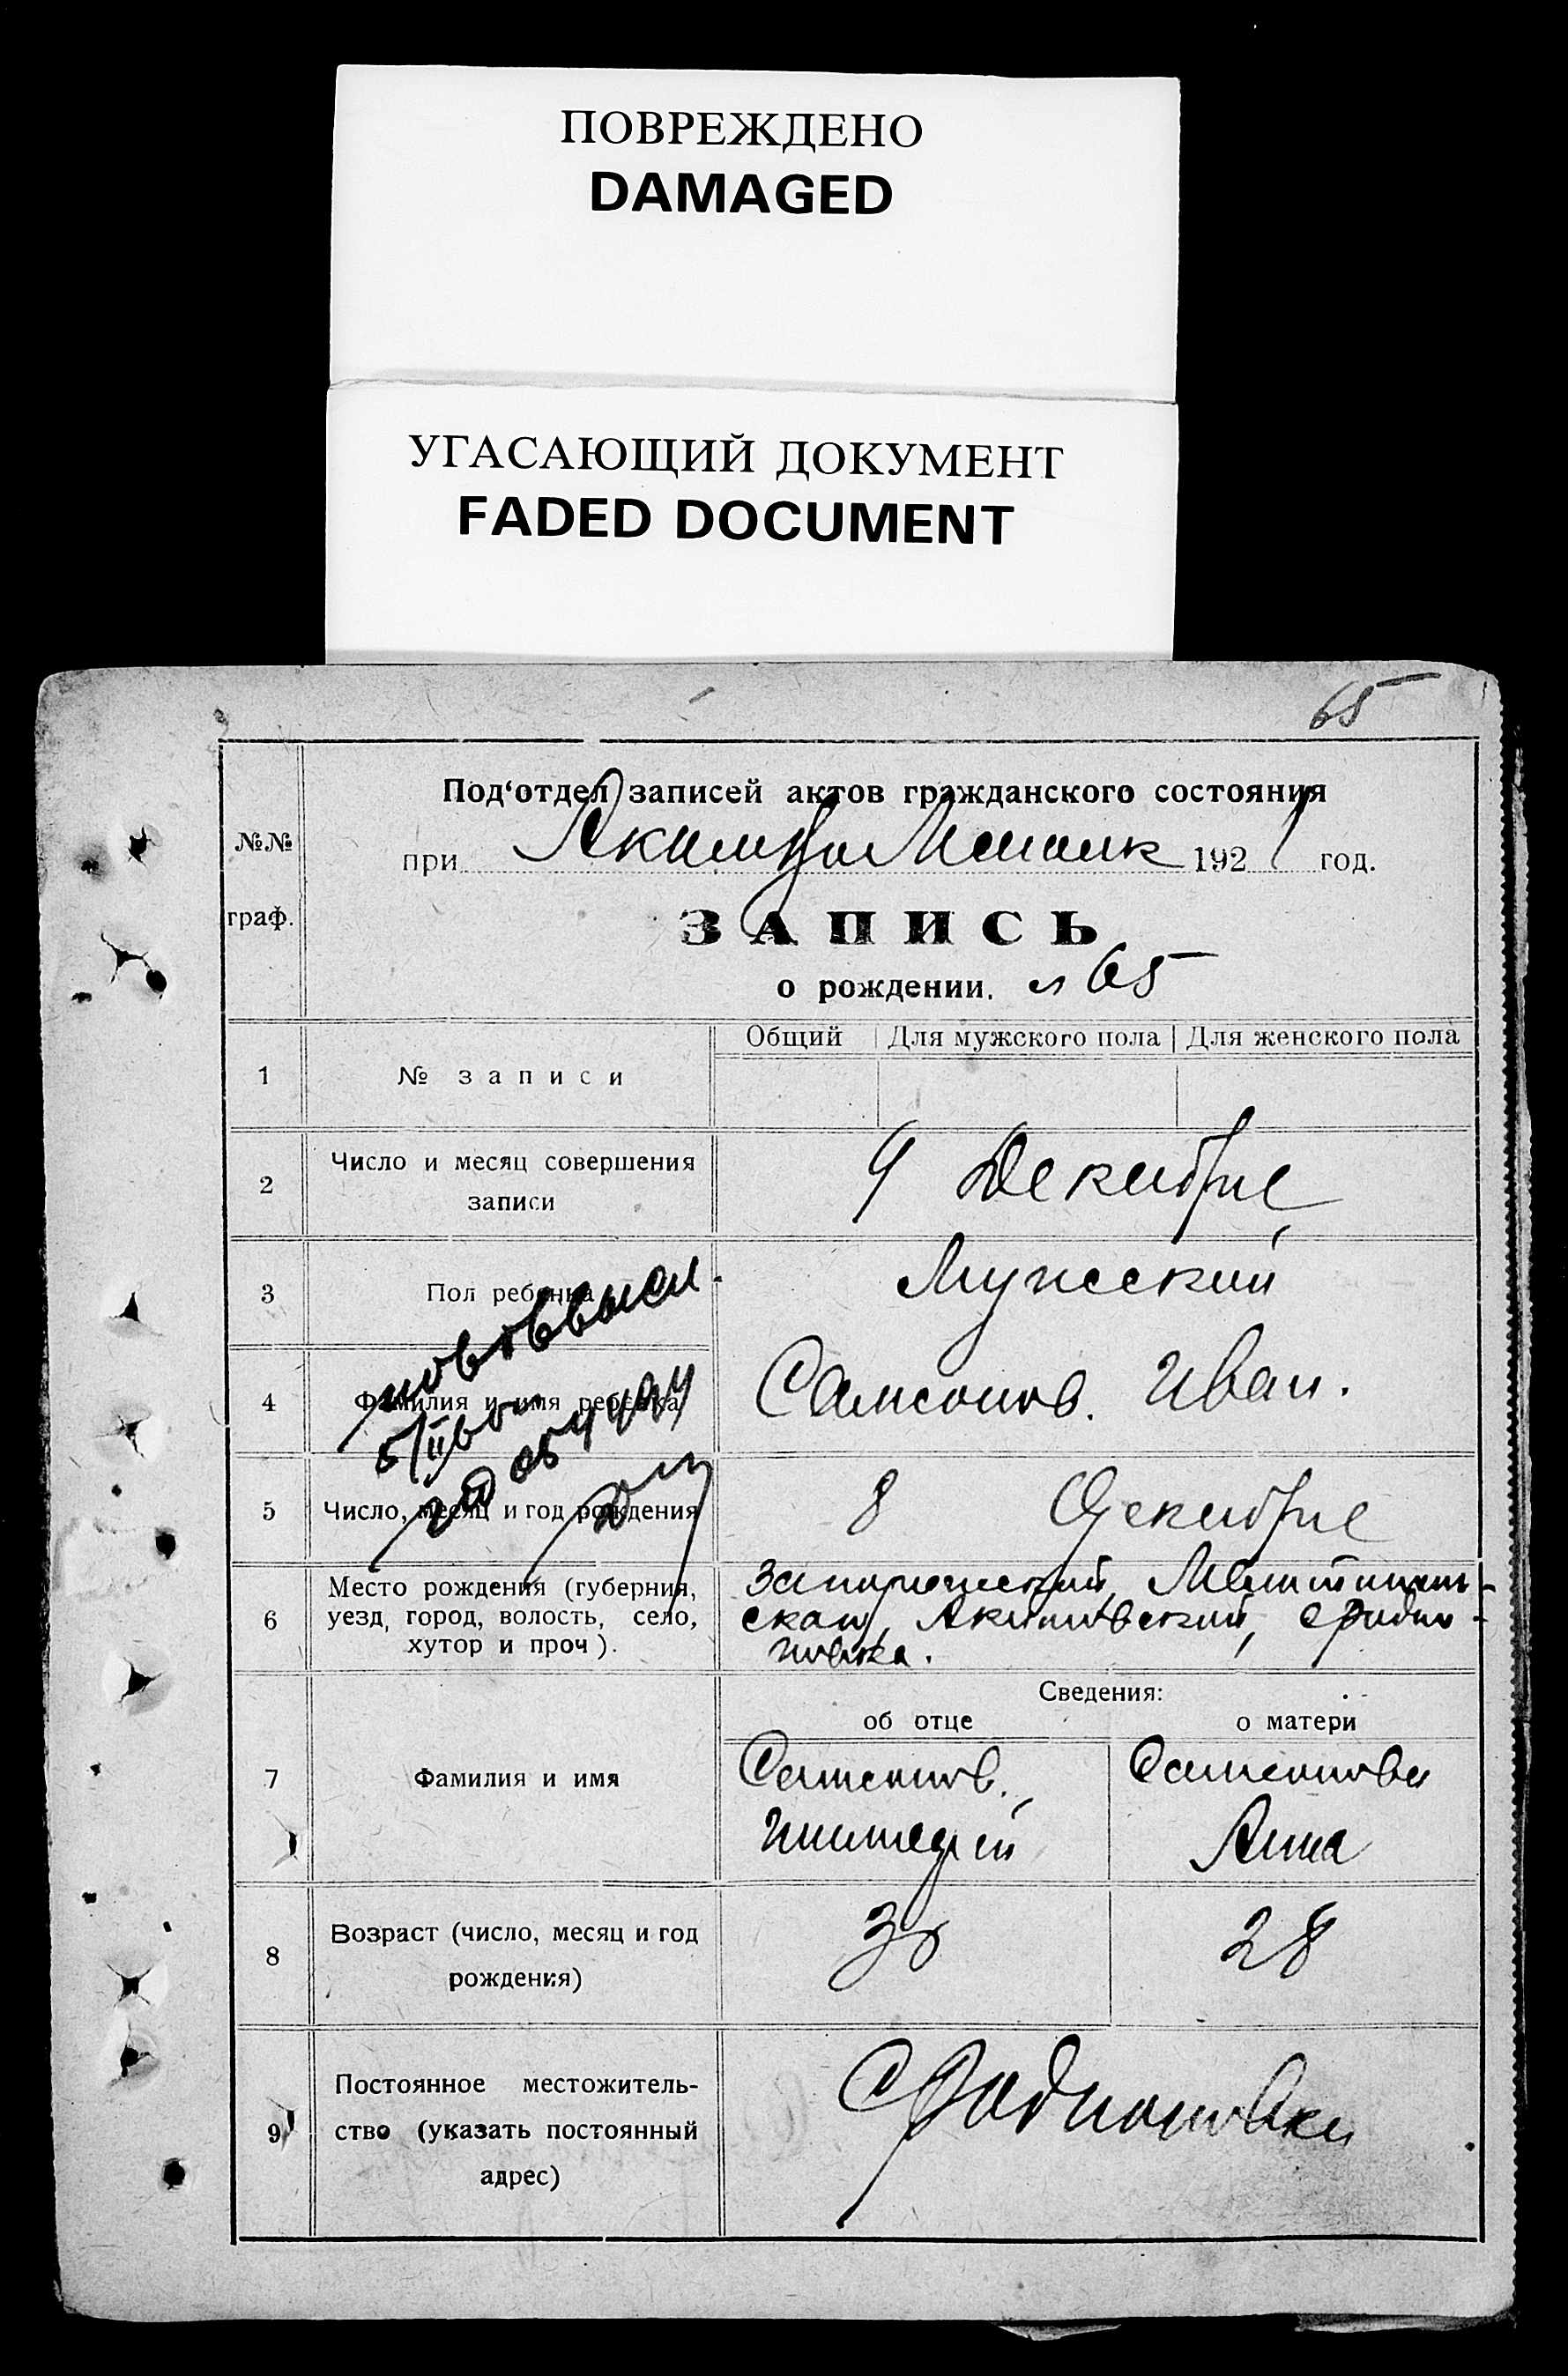 ПОВРЕЖДЕНО
DAMAGED
УГАСАЮЩИЙ ДОКУМЕНТ
FADED DOCUMENT
65
Под‘отдел записей актов гражданского состояния
№№
при 1921 год.
граф.
ЗАПИСЬ
о рождении. 65
Общий Для мужского пола Для женского пола
1 № записи
2 Число и месяц совершения записи
9 Декабре
3 Пол ребенка
Мужский
4 Фамилия и имя ребенка
Самсонов. Иван.
5 Число, месяц и год рождения
8 Декабре
6 Место рождения (губерния,
уезд, город, волость, село,
хутор и проч).
Акимовский,
новка.
Сведения:
об отце о матери
7 Фамилия и имя
Самсонов. Самсонова
Анна
8 Возраст (число, месяц и год
рождения)
28
9 Постоянное местожитель-
ство (указать постоянный
адрес)
С Родионовка